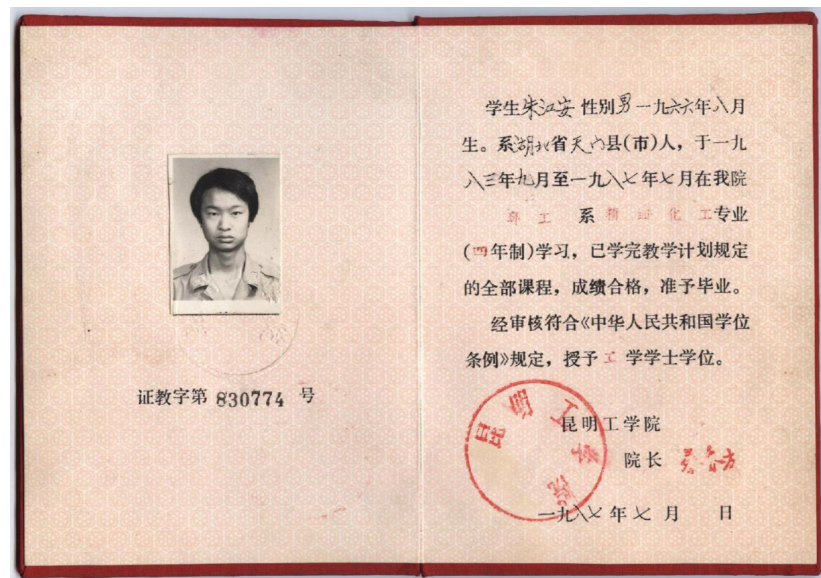 证教字第 830774 号
学生朱江安 性别男 一九六六年八月
生。系湖北省天门县(市)人，于一九
八三年九月至一九八七年七月在我院
系 化工专业
(四年制)学习，已学完教学计划规定
的全部课程，成绩合格，准予毕业。
经审核符合《中华人民共和国学位
条例》规定，授予 工 学学士学位。
昆明工学院
昆明工学院
院长
一九八七年七月 日